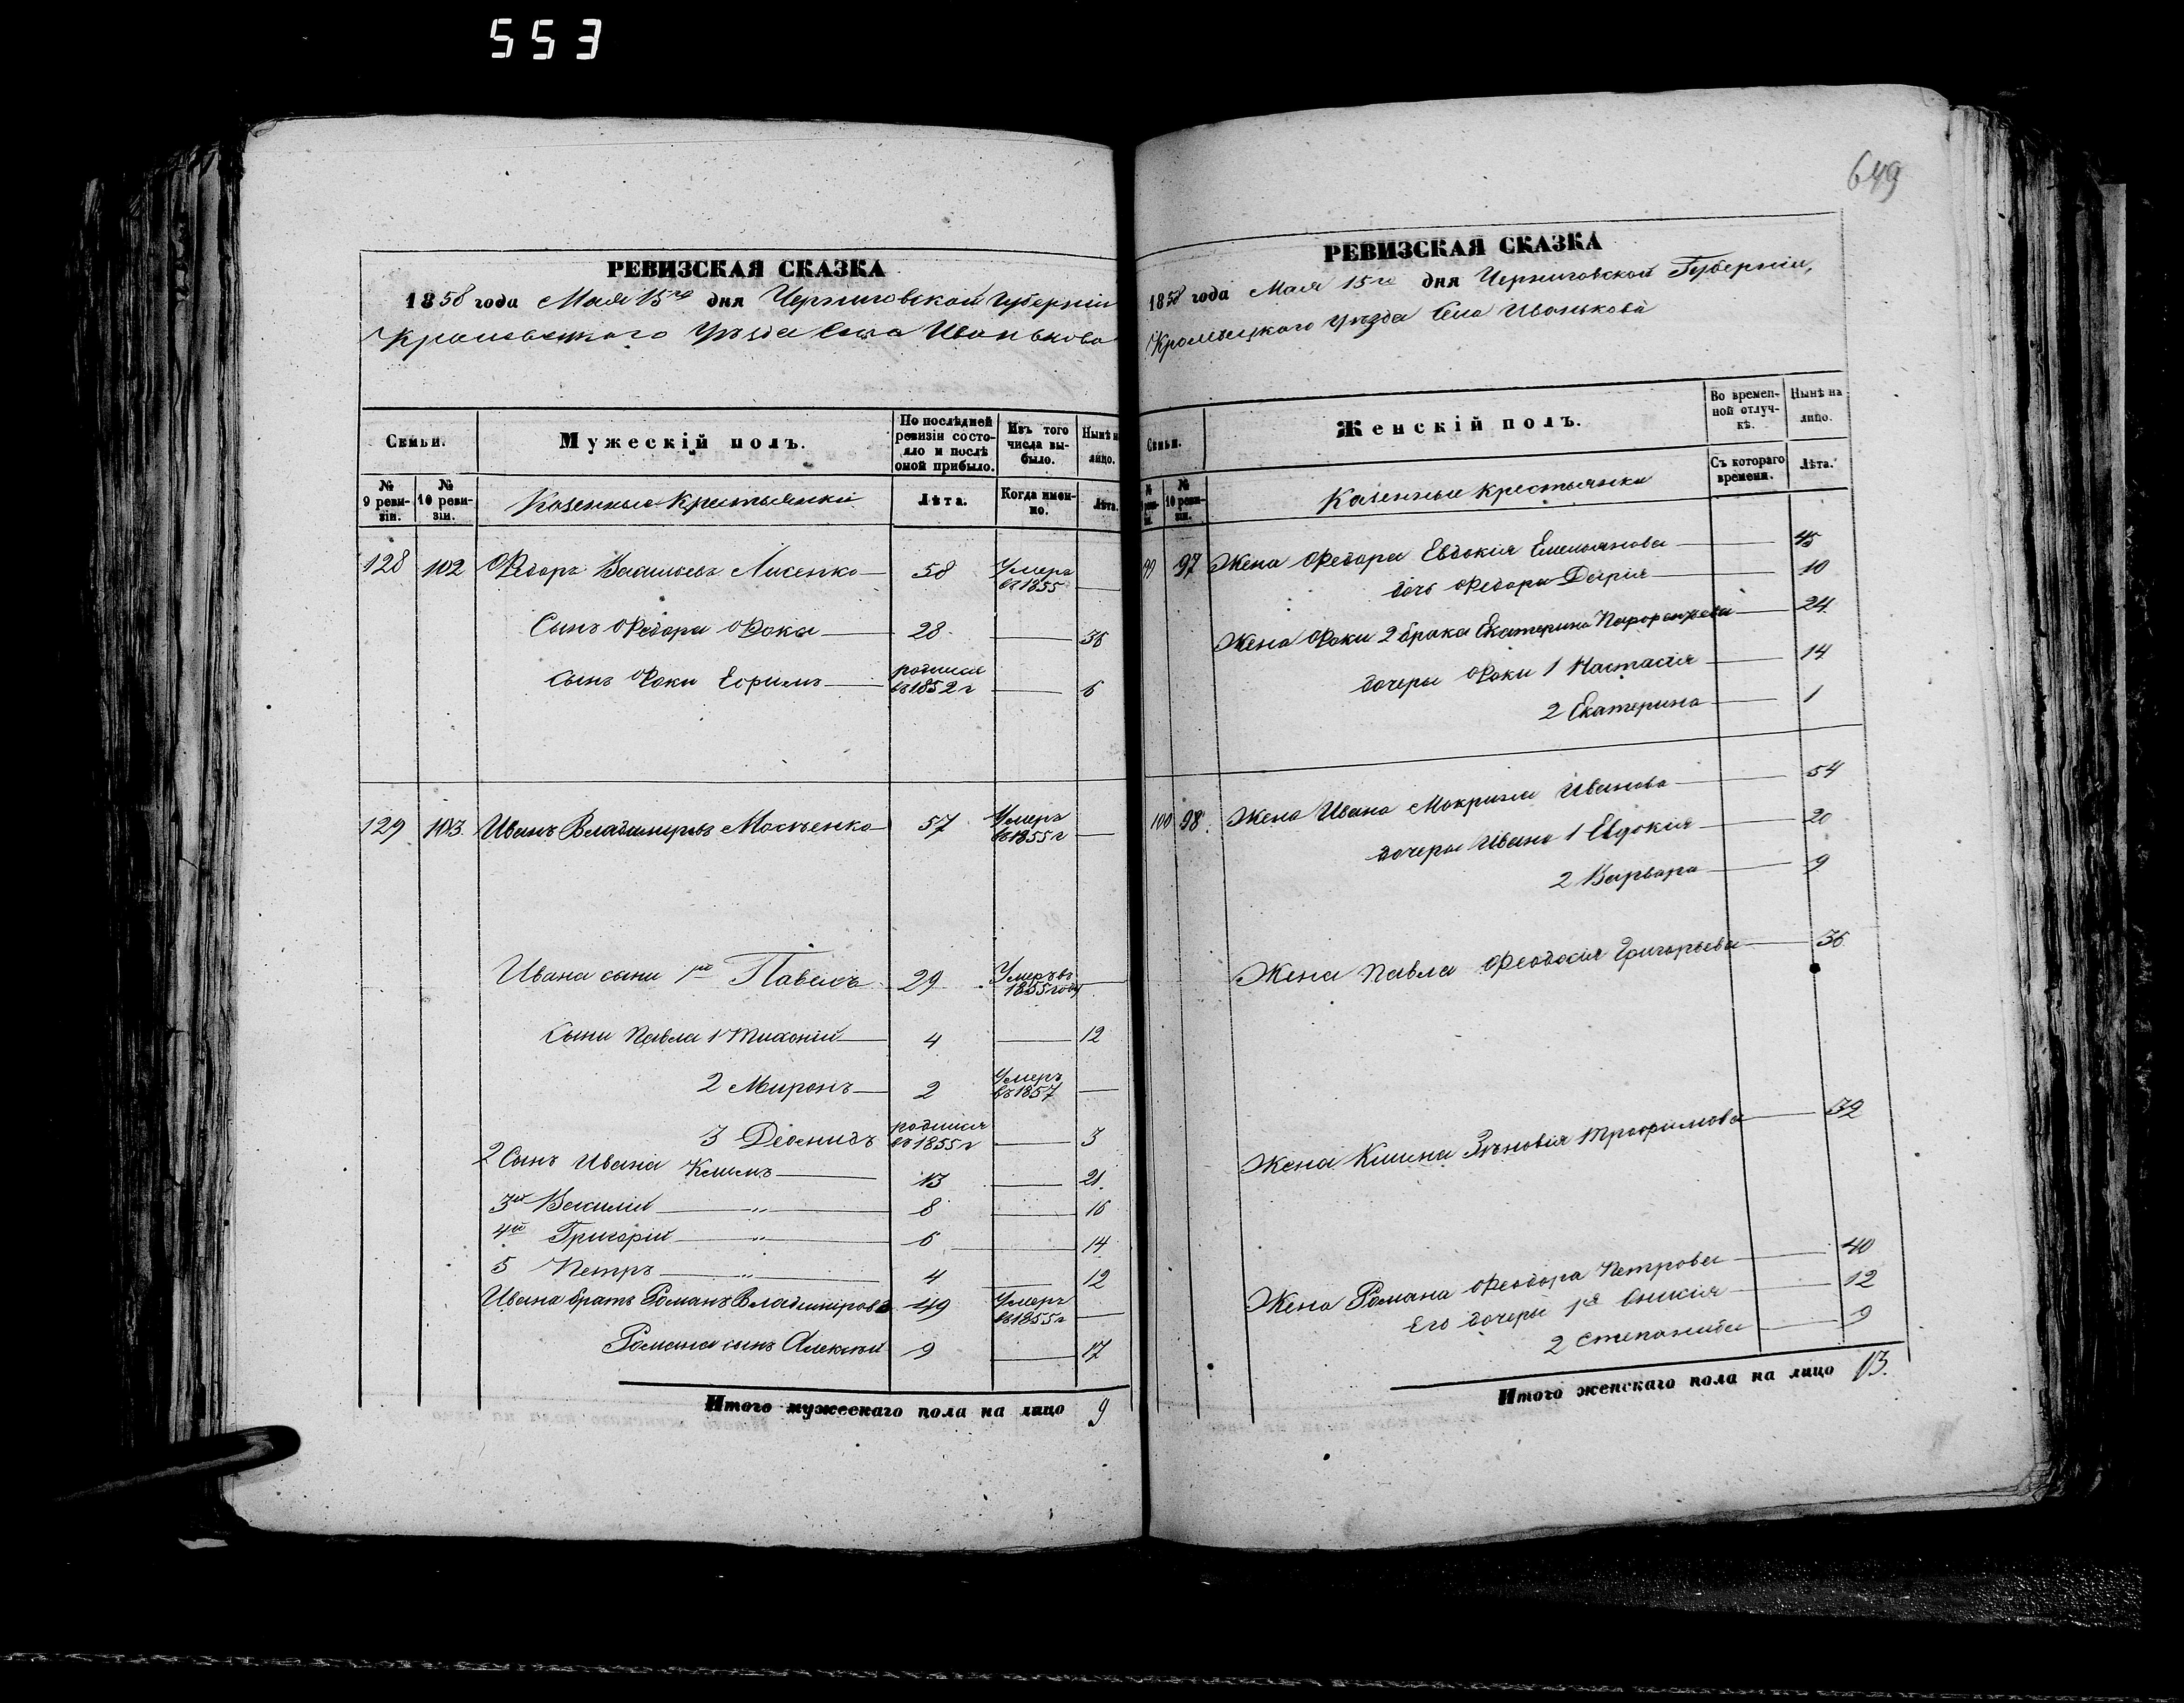 553
649
РЕВИЗСКАЯ СКАЗКА
1858 года Мая 15го дня Черниговской Губерніи
Кролевецкого Уѣзда Села Иванькова
Семьи.
Мужескій полъ.
По послѣдней ревизіи состояло и послѣ оной прибыло.
Изъ того числа выбыло.
Нынѣ на лицо.
№ 9 ревизіи.
№ 10 ревизіи.
Казенные Крестьянки
Лѣта.
Когда именно.
Лѣта.
128 102 Федоръ Васильевъ Лисенко 58 Умеръ въ 1855
Сынъ Федора Фока 28 36
Сынъ Фоки Ефимъ родился въ 1852 г 6
129 103 Иванъ Владимировъ 57 Умеръ въ 1855 г
Ивана сыны 1й Павелъ 29 Умеръ въ 1855 году
Сыны Павла 1 Тихоній 4 12
2 Миронъ 2 Умеръ въ 1857
3 Леонидъ родился въ 1855 г 3
2 Сынъ Ивана Климъ 13 21
3й Василій " 8 16
4й Григорій " 6 14
5 Петръ " 4 12
Ивана братъ Романъ Владимировъ 49 Умеръ въ 1855 г
Романа сынъ Алексѣй 9 17
Итого мужескаго пола на лицо 9
РЕВИЗСКАЯ СКАЗКА
1858 года Мая 15го дня Черниговской Губерніи,
Кролевецкого уѣзда Села Иванькова
Семьи.
Женскій полъ.
Во временной отлучкѣ.
Нынѣ на лицо.
№ 10 ревизіи.
Казенные крестьянки
Съ котораго времени.
Лѣта.
99 97 Жена Федора Евдокія Емельянова 45
дочь Федора Дарія 10
Жена Фоки 2 брака Екатерина 24
дочери Фоки 1 Настасія 14
2 Екатерина 1
100 98 Жена Ивана Макрина Иванова 54
дочери Ивана 1 Евдокія 20
2 Варвара 9
Жена Павла Феодосія Григорьева 36
Жена Клима Зѣновія Трофимова 32
Жена Романа Феодора Петрова 40
Его дочери 1я 12
2 Степанида 9
Итого женскаго пола на лицо 13.